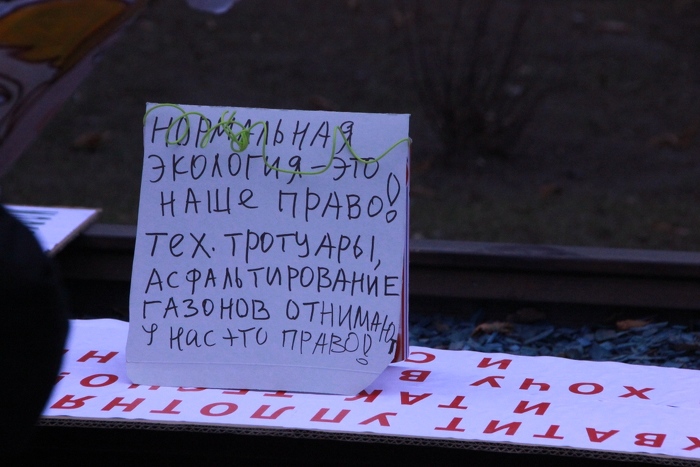 НОРМАЛЬНАЯ
ЭКОЛОГИЯ – ЭТО
НАШЕ ПРАВО!
ТЕХ. ТРОТУАРЫ,
АСФАЛЬТИРОВАНИЕ
ГАЗОНОВ ОТНИМАЮТ
У НАС ЭТО ПРАВО!
ХВАТИТ УПЛОТНЯ
И ТАК ТЕСНО
ХОЧУ В